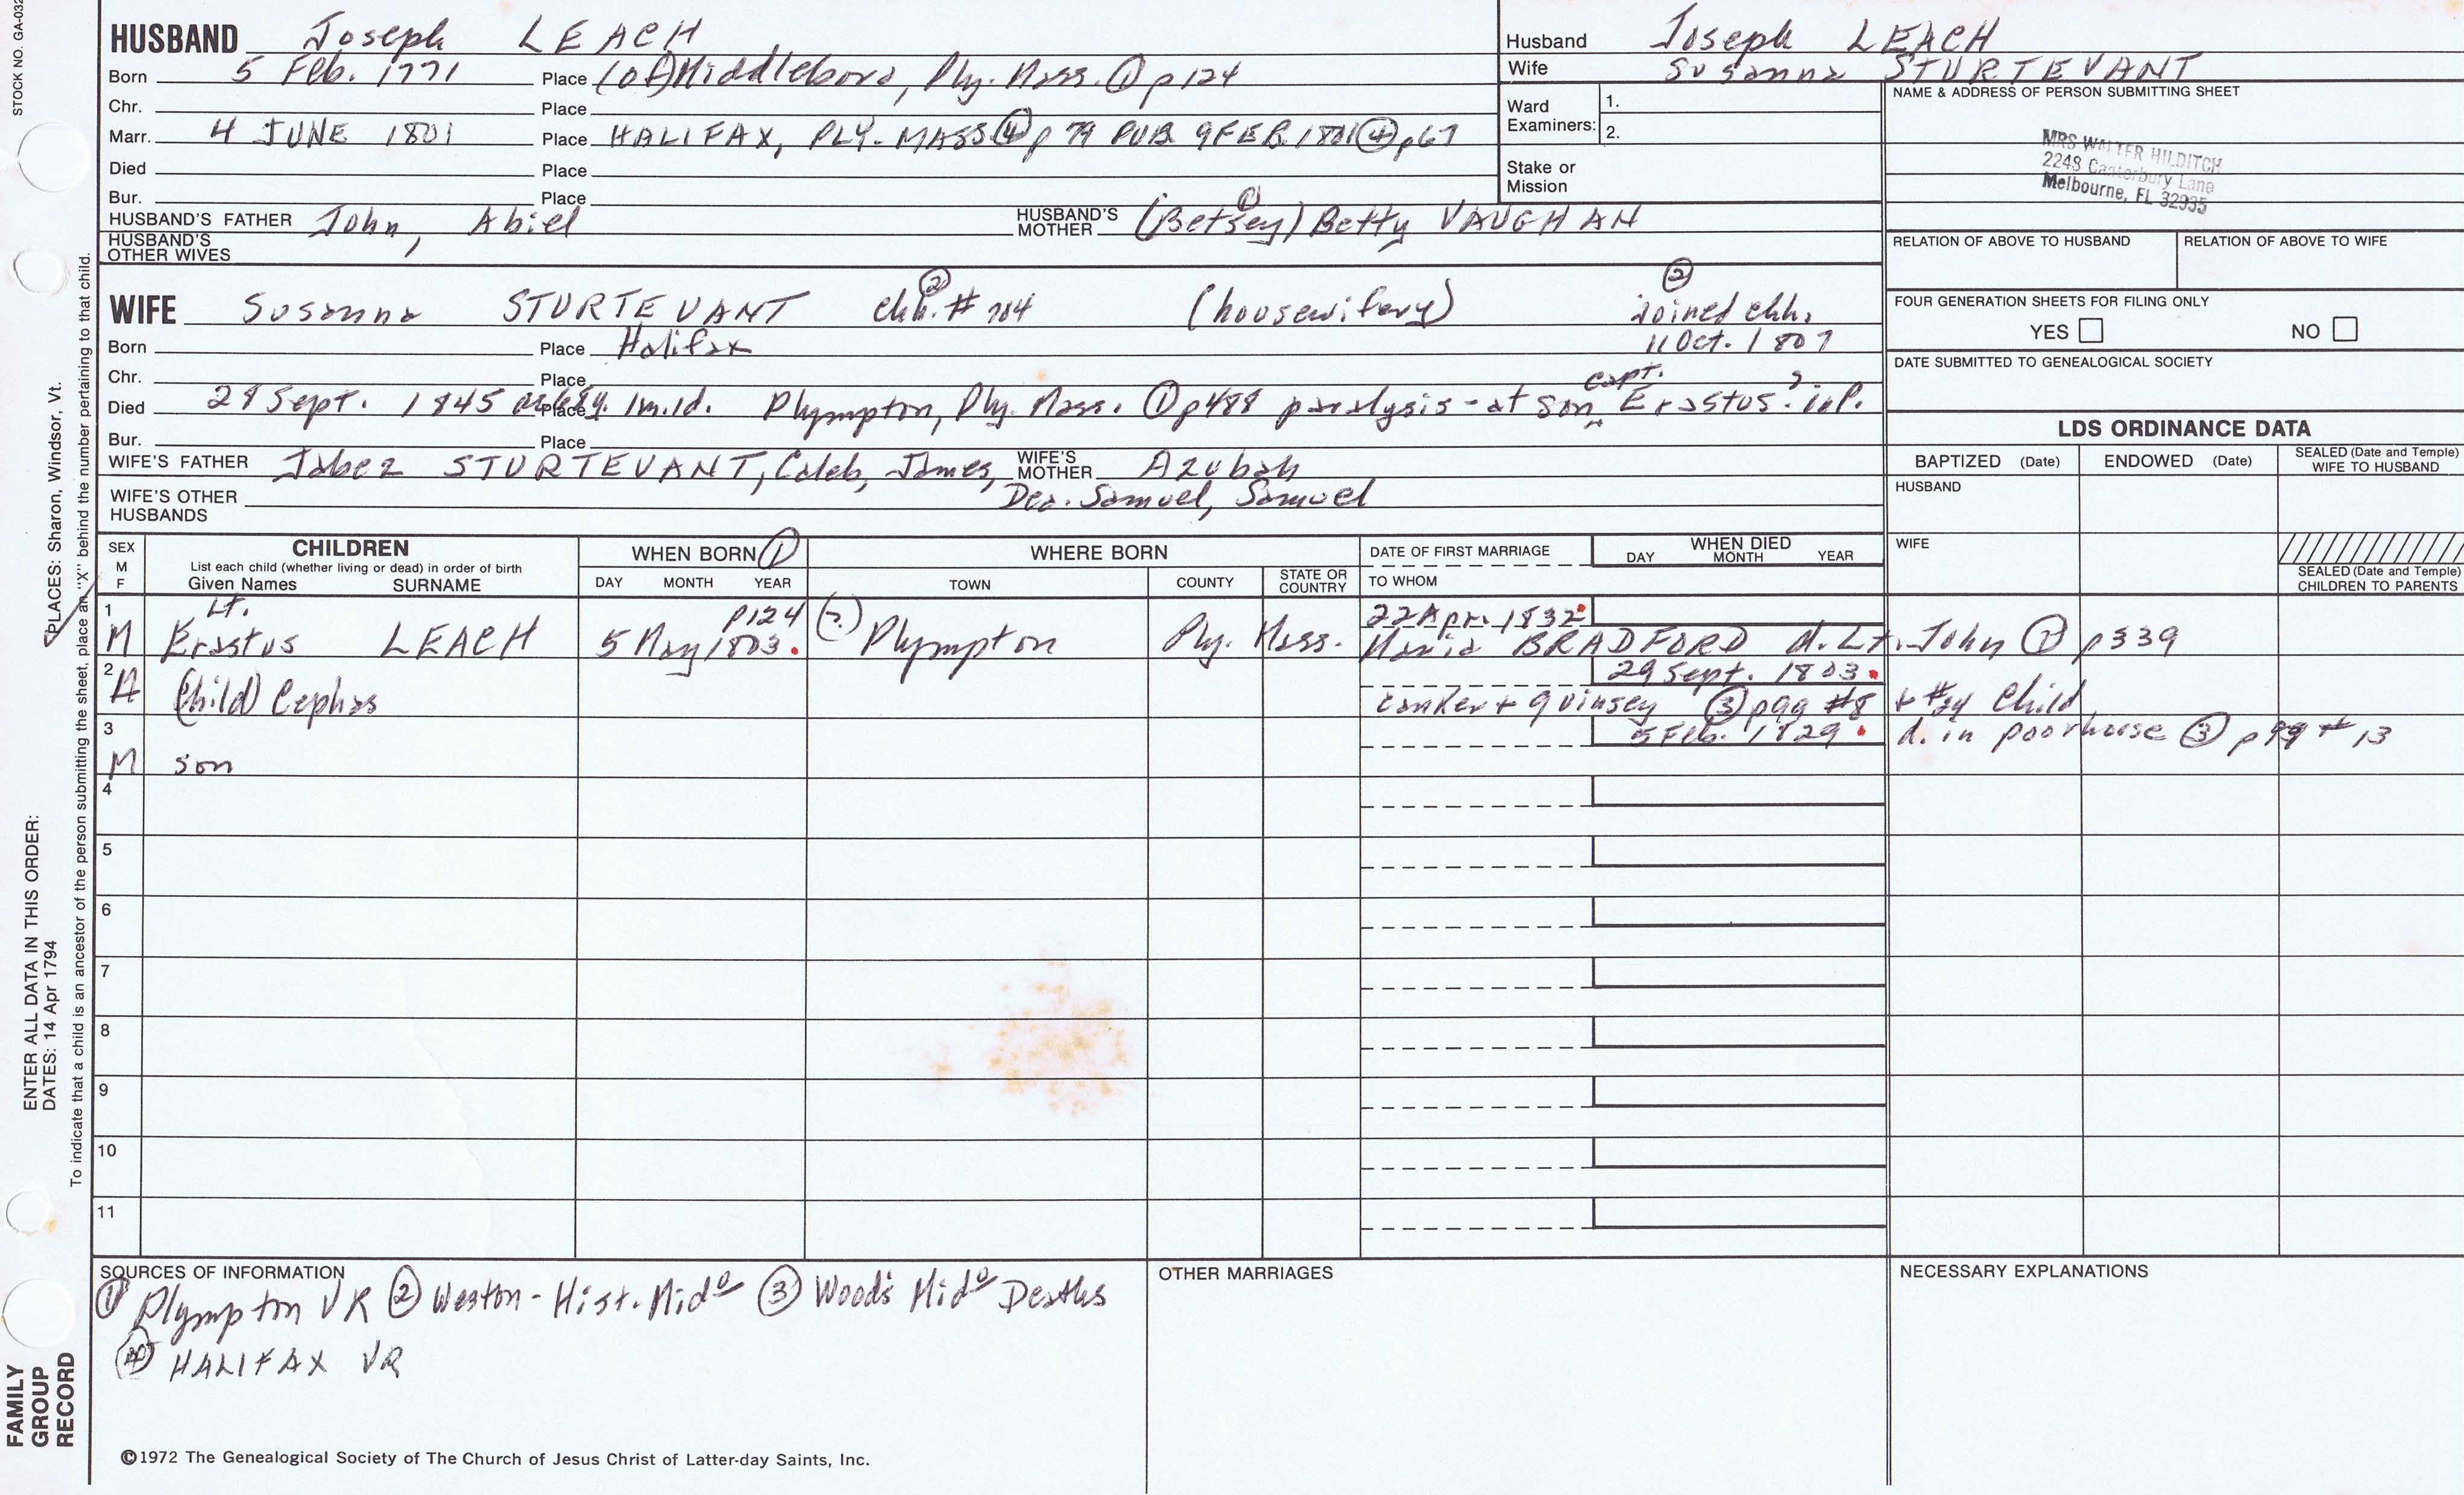 STOCK NO. GA-032
HUSBAND Joseph LEACH
Born 5 Feb. 1771 Place (of) Middleboro, Ply. Mass. ① p124
Chr. Place
Marr. 4 JUNE 1801 Place HALIFAX, PLY. MASS ④ p 79 PUB 9 FEB. 1801 ④ p67
Died Place
Bur. Place
HUSBAND'S FATHER John, Abiel HUSBAND'S MOTHER (Betsey) ① Betty VAUGHAN
HUSBAND'S OTHER WIVES
Husband Joseph LEACH
Wife Susanna STURTEVANT
Ward Examiners: 1.
2.
Stake or Mission
NAME & ADDRESS OF PERSON SUBMITTING SHEET
MRS WALTER HILDITCH
2248 Canterbury Lane
Melbourne, FL 32935
RELATION OF ABOVE TO HUSBAND RELATION OF ABOVE TO WIFE
FOUR GENERATION SHEETS FOR FILING ONLY
YES NO
DATE SUBMITTED TO GENEALOGICAL SOCIETY
WIFE Susanna STURTEVANT chh. ② # 704 (housewifery) ② joined chh.
Born Place Halifax 11 Oct. 1807
Chr. Place
Died 28 Sept. 1845 Place 1m.1d. Plympton, Ply. Mass. ① p488 paralysis - at son capt. Erastus
Bur. Place
WIFE'S FATHER Jabez STURTEVANT, Caleb, James, WIFE'S MOTHER Azubah
Dea. Samuel, Samuel
WIFE'S OTHER HUSBANDS
LDS ORDINANCE DATA
BAPTIZED (Date) ENDOWED (Date) SEALED (Date and Temple) WIFE TO HUSBAND
HUSBAND
WIFE
SEALED (Date and Temple) CHILDREN TO PARENTS
SEX M F
CHILDREN
List each child (whether living or dead) in order of birth
Given Names SURNAME
WHEN BORN ①
DAY MONTH YEAR
WHERE BORN
TOWN COUNTY STATE OR COUNTRY
DATE OF FIRST MARRIAGE
TO WHOM
WHEN DIED
DAY MONTH YEAR
1 Lt. p124 (?) 22 Apr. 1832
M Erastus LEACH 5 May 1803. Plympton Ply. Mass. Maria BRADFORD d. Lt. John ① p339
2 29 Sept. 1803.
(Child) Cephas canker + quinsey ③ p99 #8 + #24 Child
3 5 Feb. 1829. d. in poorhouse ③ p99 # 13
M son
4
5
6
7
8
9
10
11
SOURCES OF INFORMATION
① Plympton VR ② Weston - Hist. Mido ③ Wood's Mido Deaths
④ HALIFAX VR
OTHER MARRIAGES
NECESSARY EXPLANATIONS
©1972 The Genealogical Society of The Church of Jesus Christ of Latter-day Saints, Inc.
PLACES: Sharon, Windsor, Vt.
ENTER ALL DATA IN THIS ORDER:
DATES: 14 Apr 1794
To indicate that a child is an ancestor of the person submitting the sheet, place an "X" behind the number pertaining to that child.
FAMILY
GROUP
RECORD